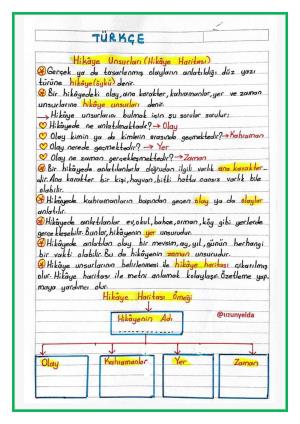 TÜRKÇE
Hikâye Unsurları (Hikâye Haritası)
Gerçek ya da tasarlanmış olayların anlatıldığı düz yazı
türüne hikâye (öykü) denir.
Bir hikâyedeki olay, ana karakter, kahramanlar, yer ve zaman
unsurlarına hikâye unsurları denir.
→ Hikâye unsurlarını bulmak için şu sorular sorulur:
Hikâyede ne anlatılmaktadır? → Olay
Olay kimin ya da kimlerin arasında geçmektedir? → Kahraman
Olay nerede geçmektedir? → Yer
Olay ne zaman gerçekleşmektedir? → Zaman
Bir hikâyede anlatılanlarla doğrudan ilgili varlık ana karakter-
dir. Ana karakter bir kişi, hayvan, bitki hatta cansız varlık bile
olabilir.
Hikâyede kahramanların başından geçen olay ya da olaylar
anlatılır.
Hikâyede anlatılanlar ev, okul, bahçe, orman, köy gibi yerlerde
gerçekleşebilir. Bunlar, hikâyenin yer unsurudur.
Hikâyede anlatılan olay bir mevsim, ay, yıl, günün herhangi
bir vakti olabilir. Bu da hikâyenin zaman unsurudur.
Hikâye unsurlarının belirlenmesi ile hikâye haritası çıkartılmış
olur. Hikâye haritası ile metni anlamak kolaylaşır. Özetleme yap-
maya yardımcı olur.
Hikâye Haritası Örneği
@uzunyelda
Hikâyenin Adı
Olay
Kahramanlar
Yer
Zaman